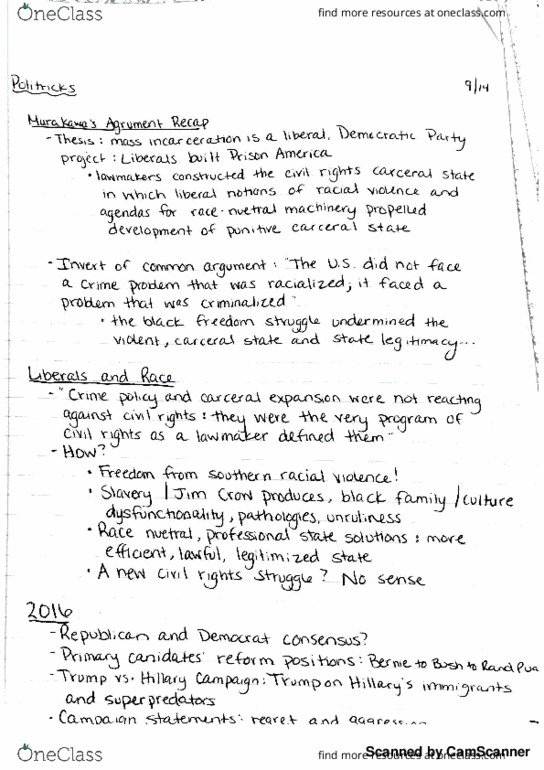 OneClass
find more resources at oneclass.com
Politricks
9/14
Murakawa's Agrument Recap
- Thesis: mass incarceration is a liberal, Democratic Party
project: Liberals built Prison America
• lawmakers constructed the civil rights carceral state
in which liberal notions of racial violence and
agendas for race-nuetral machinery propelled
development of punitive carceral state
- Invert of common argument: "The U.S. did not face
a crime problem that was racialized; it faced a
problem that was criminalized"
• the black freedom struggle undermined the
violent, carceral state and state legitimacy...
Liberals and Race
- "Crime policy and carceral expansion were not reacting
against civil rights: they were the very program of
civil rights as a lawmaker defined them"
- How?
• Freedom from southern racial violence!
• Slavery / Jim Crow produces, black family / culture
dysfunctionality, pathologies, unruliness
• Race nuetral, professional state solutions: more
efficient, lawful, legitimized state
• A new civil rights struggle? No sense
2016
- Republican and Democrat consensus?
- Primary canidates' reform positions: Bernie to Bush to Rand Pua
- Trump vs. Hillary Campaign: Trump on Hillary's immigrants
and superpredators
- Campaign statements: regret and aggression
OneClass
find more resources at oneclass.com
Scanned by CamScanner